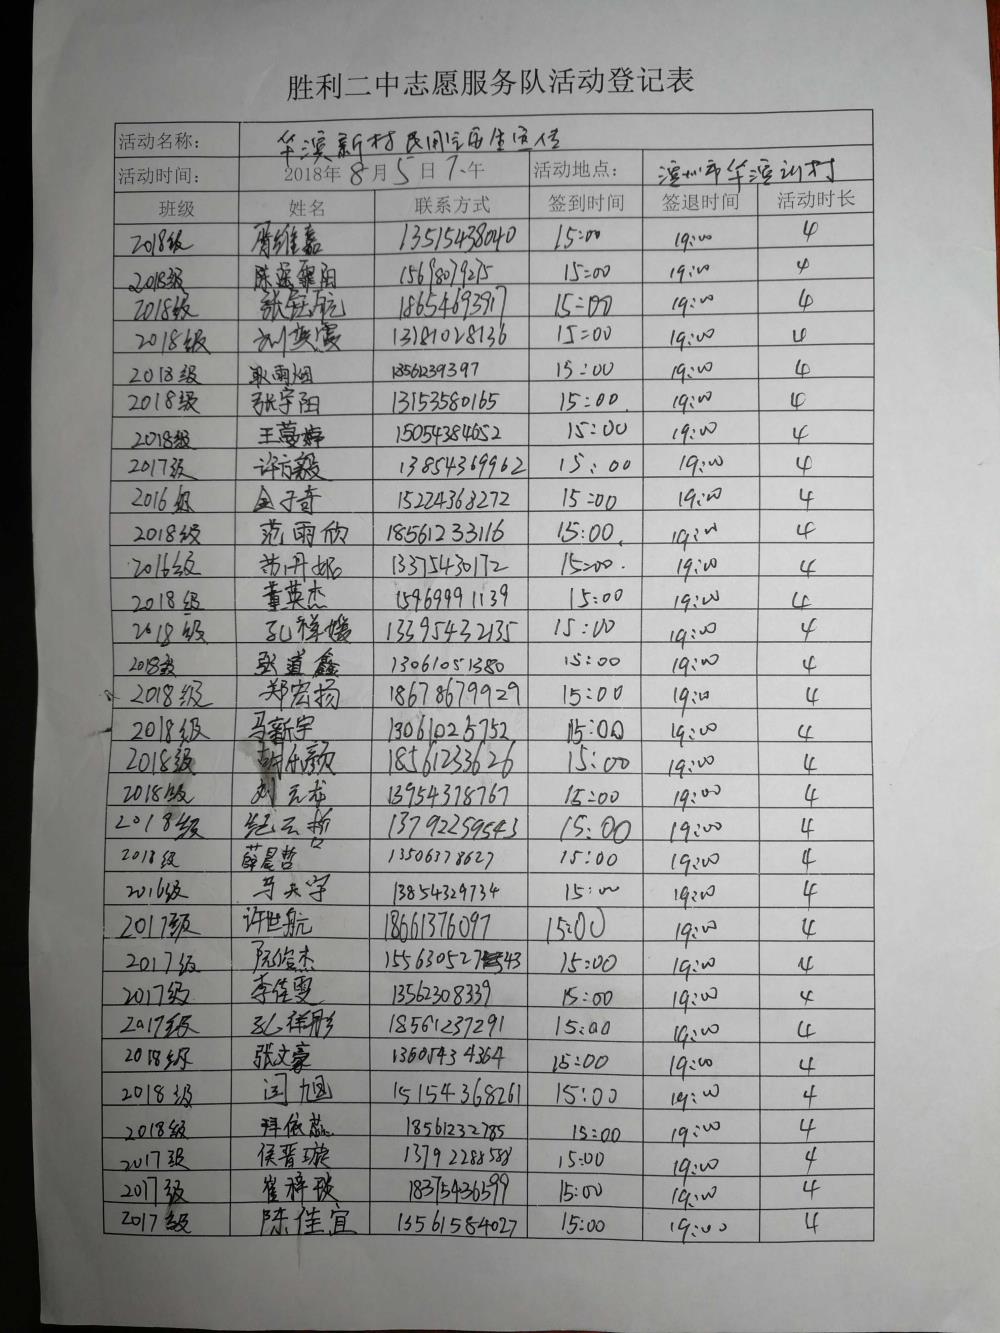 胜利二中志愿服务队活动登记表
活动名称: 华滨新村民用 宣传
活动时间: 2018年8月5日下午 活动地点: 滨州市华滨新村
班级 姓名 联系方式 签到时间 签退时间 活动时长
2018级 胥维嘉 13515438040 15:00 19:00 4
2018级 陈 阳 15698079275 15:00 19:00 4
2018级 张钰航 18654693917 15:00 19:00 4
2018级 刘英霞 13181028136 15:00 19:00 4
2018级 耿雨烟 18561239397 15:00 19:00 4
2018级 张宇阳 13153580165 15:00 19:00 4
2018级 王蔓婷 15054384652 15:00 19:00 4
2017级 许方毅 13854369962 15:00 19:00 4
2016级 金子奇 15224368272 15:00 19:00 4
2018级 范雨欣 18561233116 15:00 19:00 4
2016级 苏丹妮 13375430172 15:00 19:00 4
2018级 董英杰 15969991139 15:00 19:00 4
2018级 孔祥媛 13395432135 15:00 19:00 4
2018级 张道鑫 13061051380 15:00 19:00 4
2018级 郑宏扬 18678679929 15:00 19:00 4
2018级 马新宇 13061025752 15:00 19:00 4
2018级 胡乐颜 18561233626 15:00 19:00 4
2018级 刘云龙 13954378767 15:00 19:00 4
2018级 纪云哲 13792259543 15:00 19:00 4
2018级 薛晨哲 13506378627 15:00 19:00 4
2016级 马天宇 13854329734 15:00 19:00 4
2017级 许世航 18661376097 15:00 19:00 4
2017级 阮俊杰 15563052743 15:00 19:00 4
2017级 李佳雯 13562308339 15:00 19:00 4
2017级 孔祥彤 18561237291 15:00 19:00 4
2018级 张文豪 13605434364 15:00 19:00 4
2018级 闫旭 15154368261 15:00 19:00 4
2018级 拜依蕊 18561232785 15:00 19:00 4
2017级 侯晋璇 13792288588 15:00 19:00 4
2017级 崔梓琰 18375436599 15:00 19:00 4
2017级 陈佳宜 13561584027 15:00 19:00 4